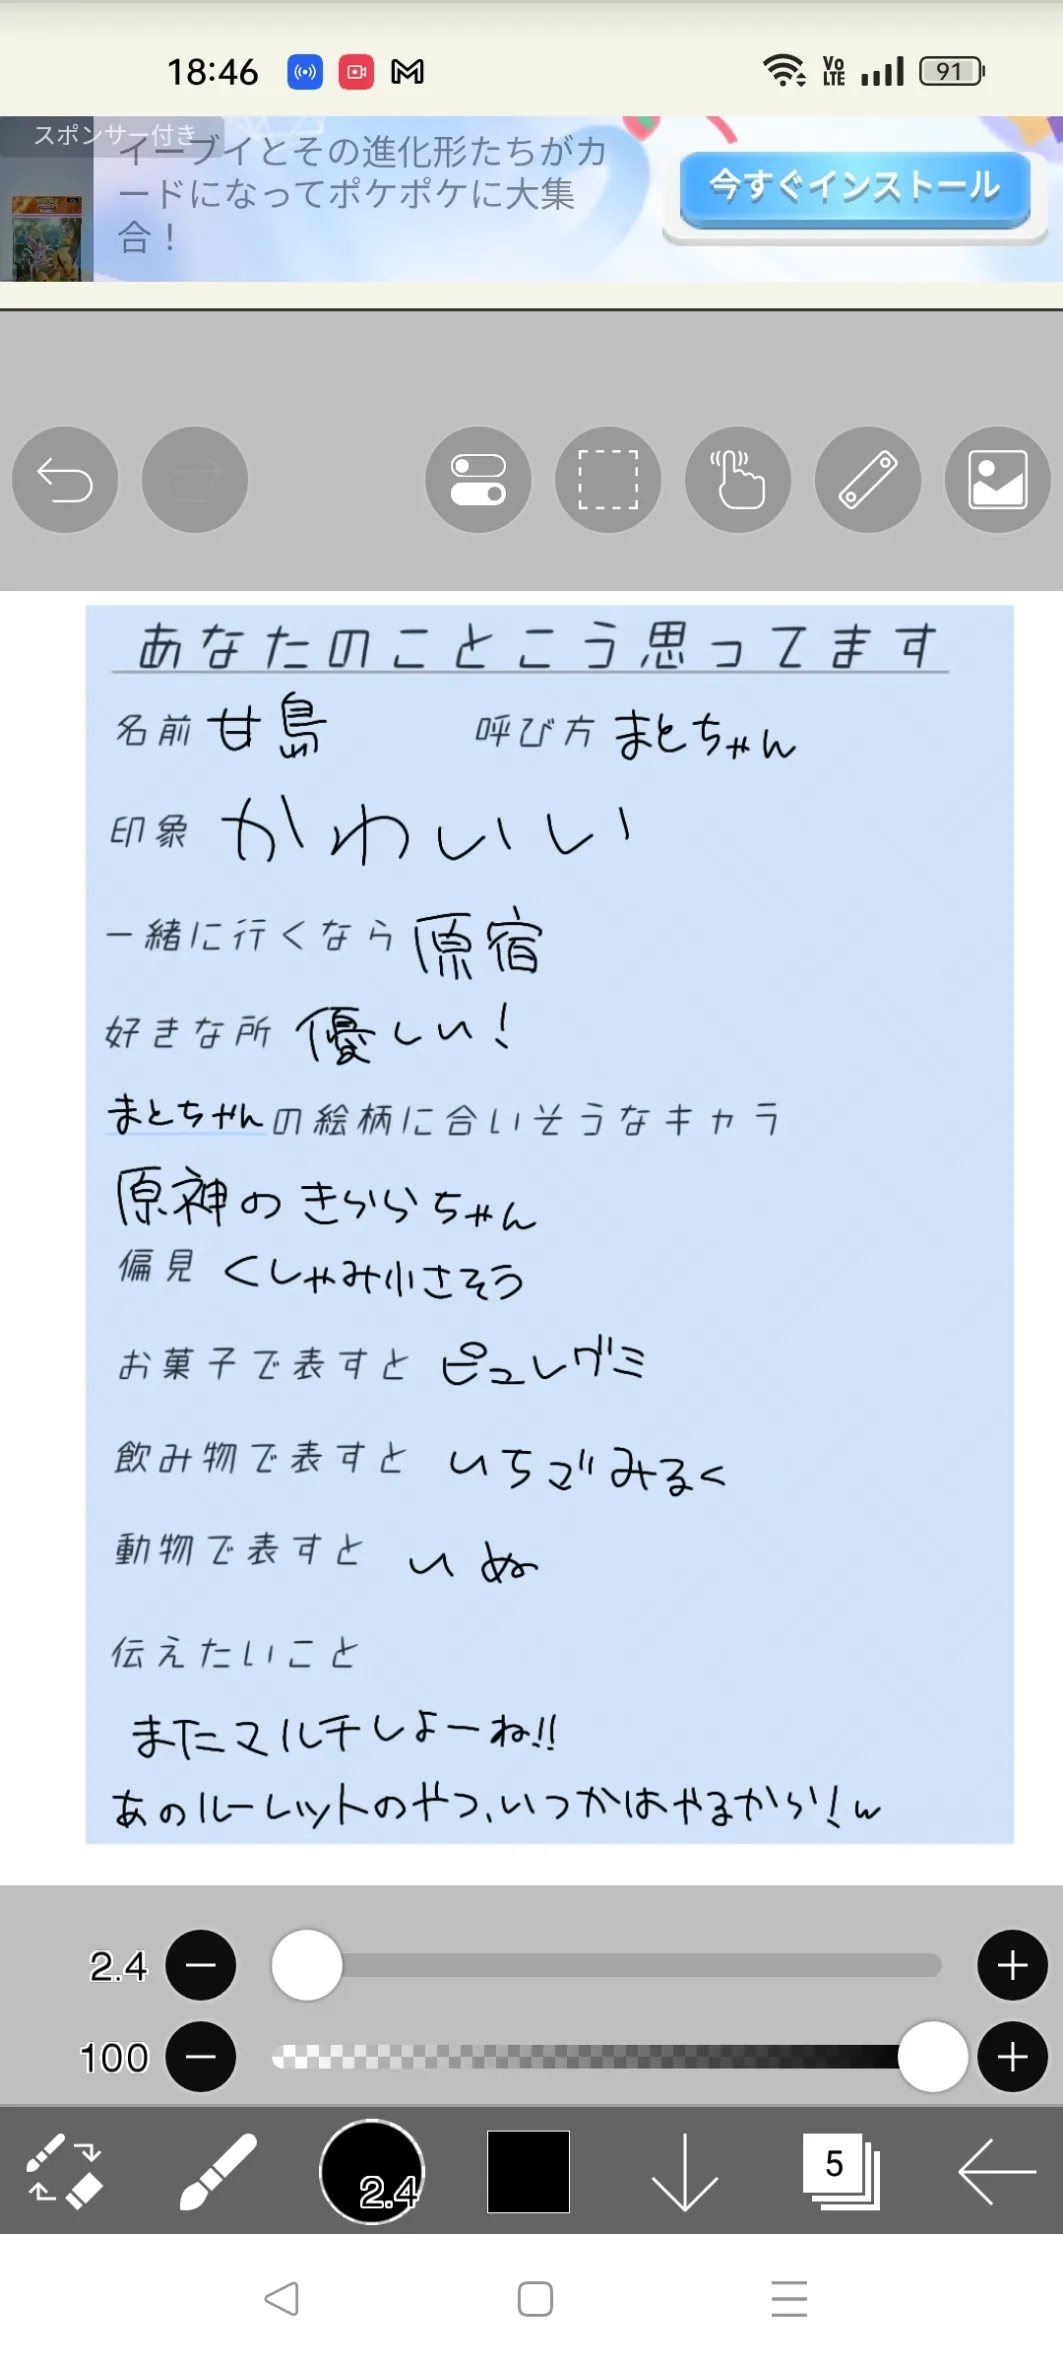 18:46
Vo LTE
91
スポンサー付き
イーブイとその進化形たちがカ
ードになってポケポケに大集
合！
今すぐインストール
あなたのことこう思ってます
名前 甘島 呼び方 まとちゃん
印象 かわいい
一緒に行くなら 原宿
好きな所 優しい！
まとちゃんの絵柄に合いそうなキャラ
原神のきららちゃん
偏見 くしゃみ小さそう
お菓子で表すと ピュレグミ
飲み物で表すと いちごみるく
動物で表すと いぬ
伝えたいこと
またマルチしよーね!!
あのルーレットのやつ、いつかはやるから！w
2.4
100
2.4
5